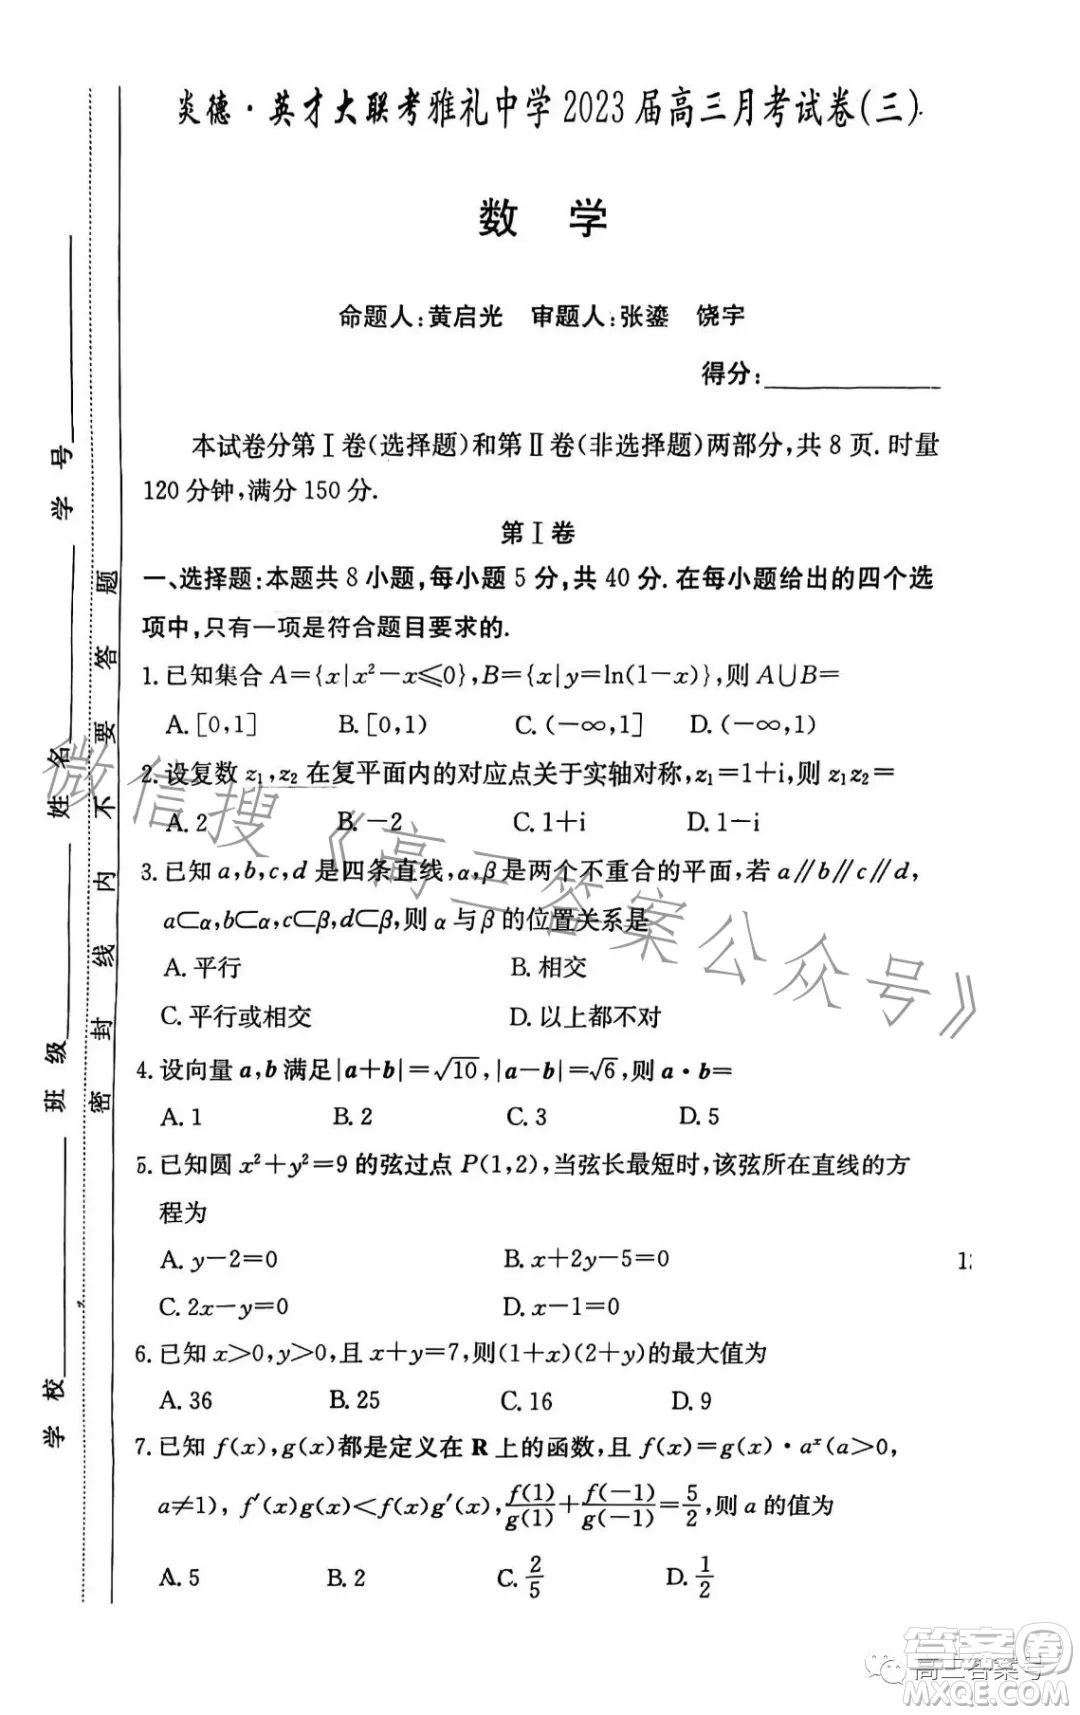 炎德·英才大联考雅礼中学2023届高三月考试卷(三)
数 学
命题人:黄启光 审题人:张鎏 饶宇
得分:
本试卷分第Ⅰ卷(选择题)和第Ⅱ卷(非选择题)两部分,共8页.时量
120分钟,满分150分.
第Ⅰ卷
一、选择题:本题共8小题,每小题5分,共40分.在每小题给出的四个选
项中,只有一项是符合题目要求的.
1.已知集合A={x|x²-x≤0},B={x|y=ln(1-x)},则A∪B=
A.[0,1] B.[0,1) C.(-∞,1] D.(-∞,1)
2.设复数z₁,z₂在复平面内的对应点关于实轴对称,z₁=1+i,则z₁z₂=
A.2 B.-2 C.1+i D.1-i
3.已知a,b,c,d是四条直线,α,β是两个不重合的平面,若a∥b∥c∥d,
a⊂α,b⊂α,c⊂β,d⊂β,则α与β的位置关系是
A.平行 B.相交
C.平行或相交 D.以上都不对
4.设向量a,b满足|a+b|=√10,|a-b|=√6,则a·b=
A.1 B.2 C.3 D.5
5.已知圆x²+y²=9的弦过点P(1,2),当弦长最短时,该弦所在直线的方
程为
A.y-2=0 B.x+2y-5=0
C.2x-y=0 D.x-1=0
6.已知x>0,y>0,且x+y=7,则(1+x)(2+y)的最大值为
A.36 B.25 C.16 D.9
7.已知f(x),g(x)都是定义在R上的函数,且f(x)=g(x)·aˣ(a>0,
a≠1),f′(x)g(x)<f(x)g′(x),f(1)/g(1)+f(-1)/g(-1)=5/2,则a的值为
A.5 B.2 C.2/5 D.1/2
学 校 班 级 姓 名 学 号
密 封 线 内 不 要 答 题
微信搜《高三答案公众号》
答案卷
高三答案号
MXQE.COM